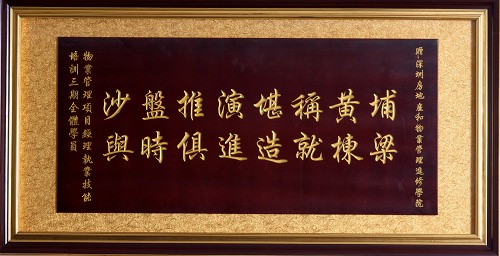 贈:深圳房地產和物業管理進修學院
埔梁
黃棟
稱就
堪造
演進
推俱
盤時
沙與
物業管理項目經理執業技能
培訓三期全體學員